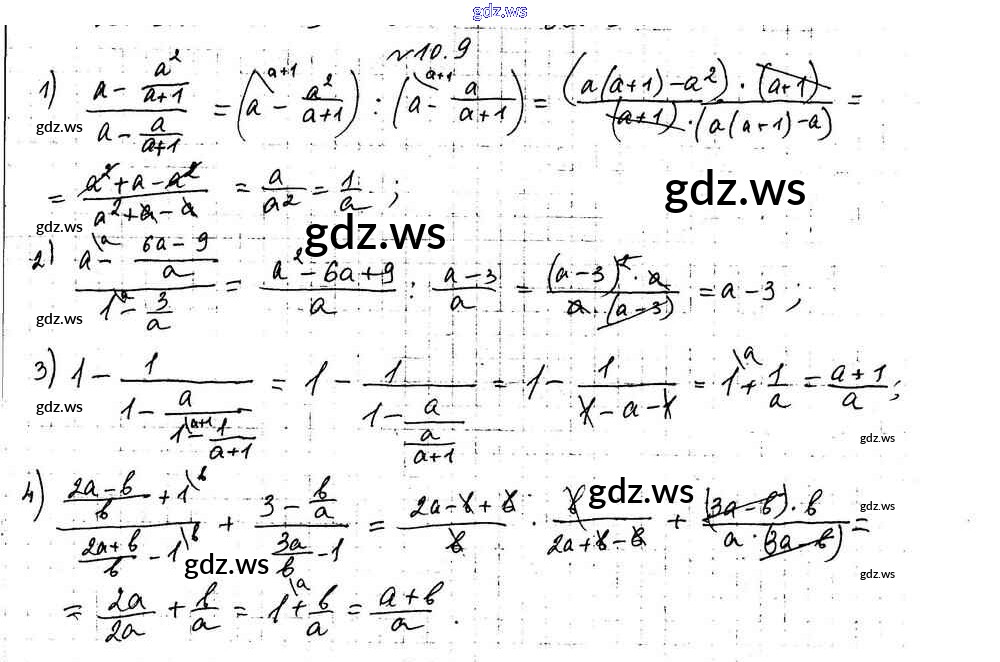 gdz.ws
№10.9
1) (a - a²/(a+1)) / (a - a/(a+1)) = (a\a+1 - a²/(a+1)) : (a\a+1 - a/(a+1)) = ((a(a+1) - a²) · (a+1)) / ((a+1) · (a(a+1) - a)) =
gdz.ws
= (a² + a - a²) / (a² + a - a) = a/a² = 1/a ;
gdz.ws
gdz.ws
gdz.ws
2) (a\a - (6a - 9)/a) / (1\a - 3/a) = (a² - 6a + 9)/a : (a - 3)/a = ((a - 3)² · a) / (a · (a - 3)) = a - 3 ;
gdz.ws
3) 1 - 1/(1 - a/(1\a+1 - 1/(a+1))) = 1 - 1/(1 - a/(a/(a+1))) = 1 - 1/(1 - a - 1) = 1\a + 1/a = (a + 1)/a ;
gdz.ws
gdz.ws
4) ((2a - b)/b + 1\b) / ((2a + b)/b - 1\b) + (3 - b/a) / (3a/b - 1) = (2a - b + b)/b · b/(2a + b - b) + ((3a - b) · b) / (a · (3a - b)) =
gdz.ws
gdz.ws
gdz.ws
gdz.ws
= 2a/2a + b/a = 1\a + b/a = (a + b)/a .